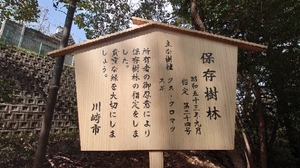 保存樹林
昭和五十三年九月
指定 第二十四号
主な樹種
クス・クロマツ
スギ
所有者の御厚意により
保存樹林の指定をしま
した。
貴重な緑を大切にしま
しょう。
川崎市